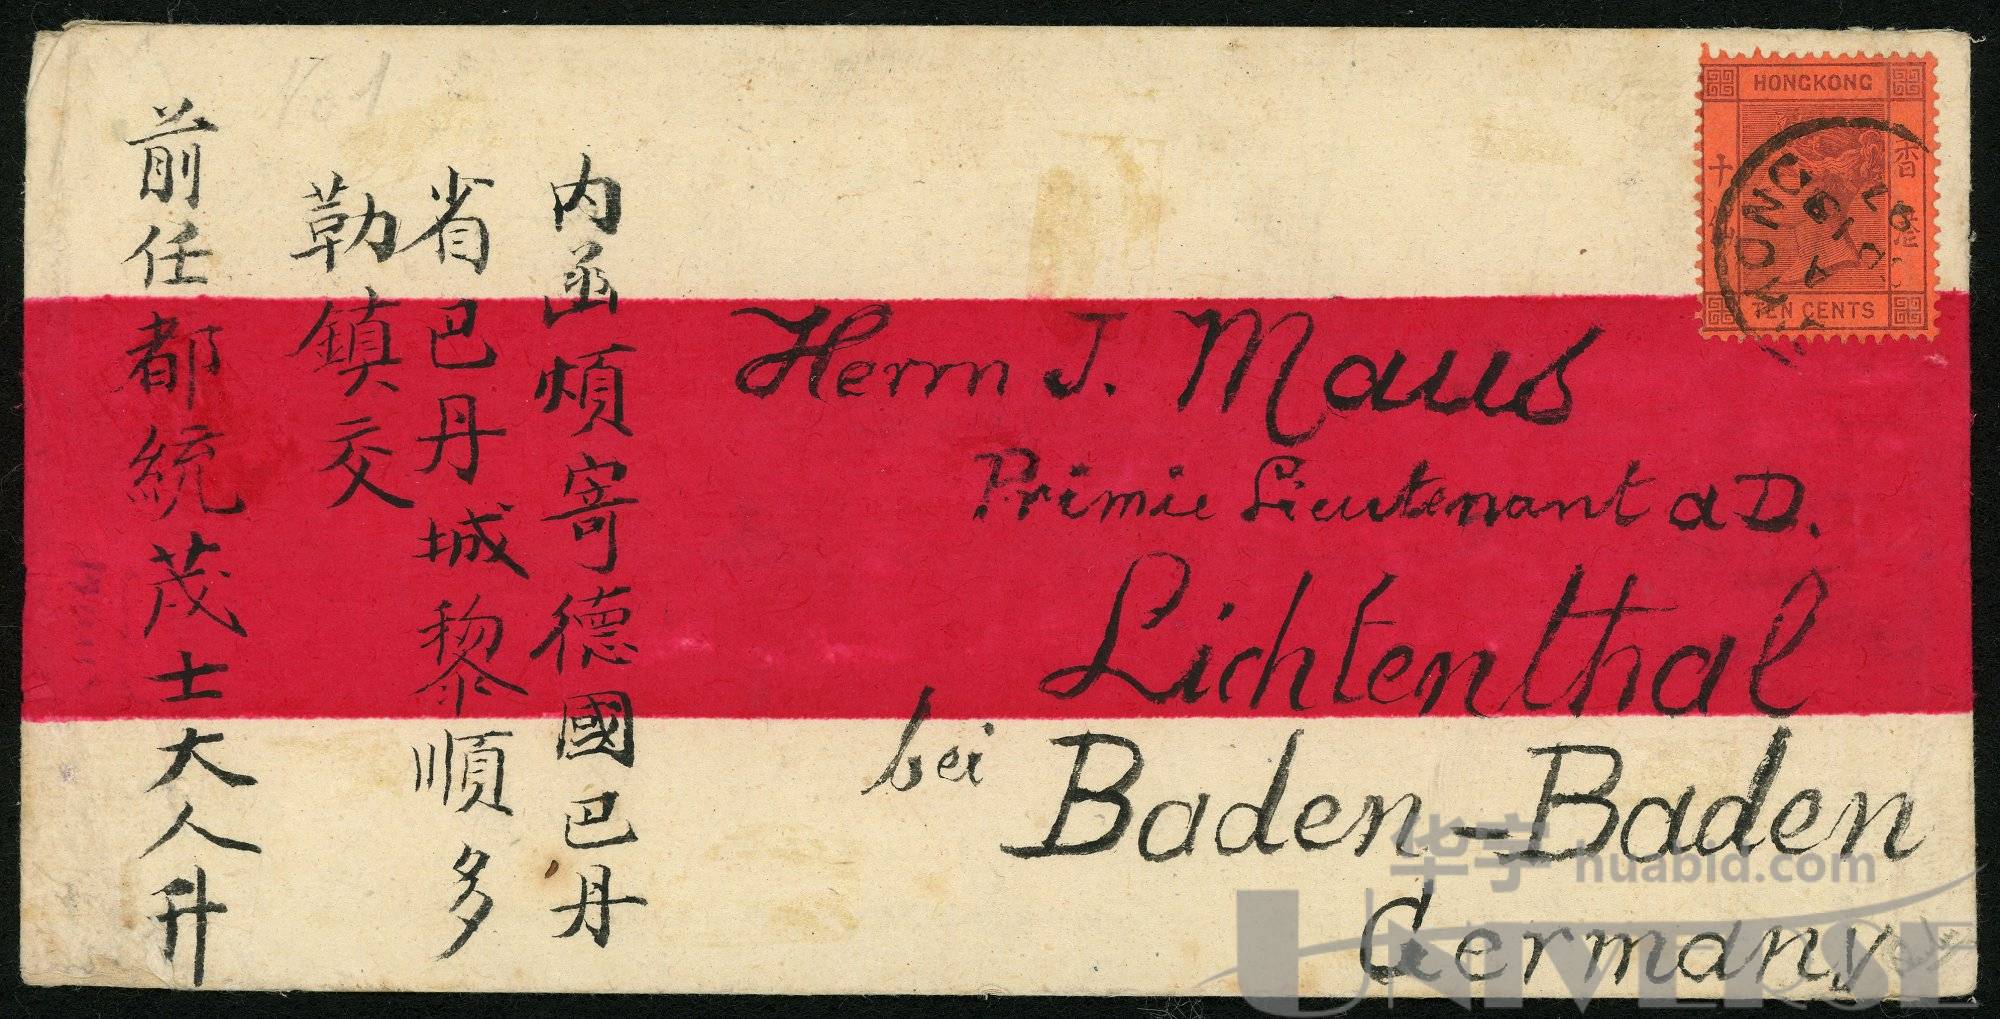 内函煩寄德國巴丹
省巴丹城黎順多
勒鎮交
前任都統茂士大人升
Herrn J. Maus
Primie Lieutenant a D.
Lichtenthal
bei Baden-Baden
Germany
HONGKONG
香港
TEN CENTS
华宇 huabid.com
UNIVERSE